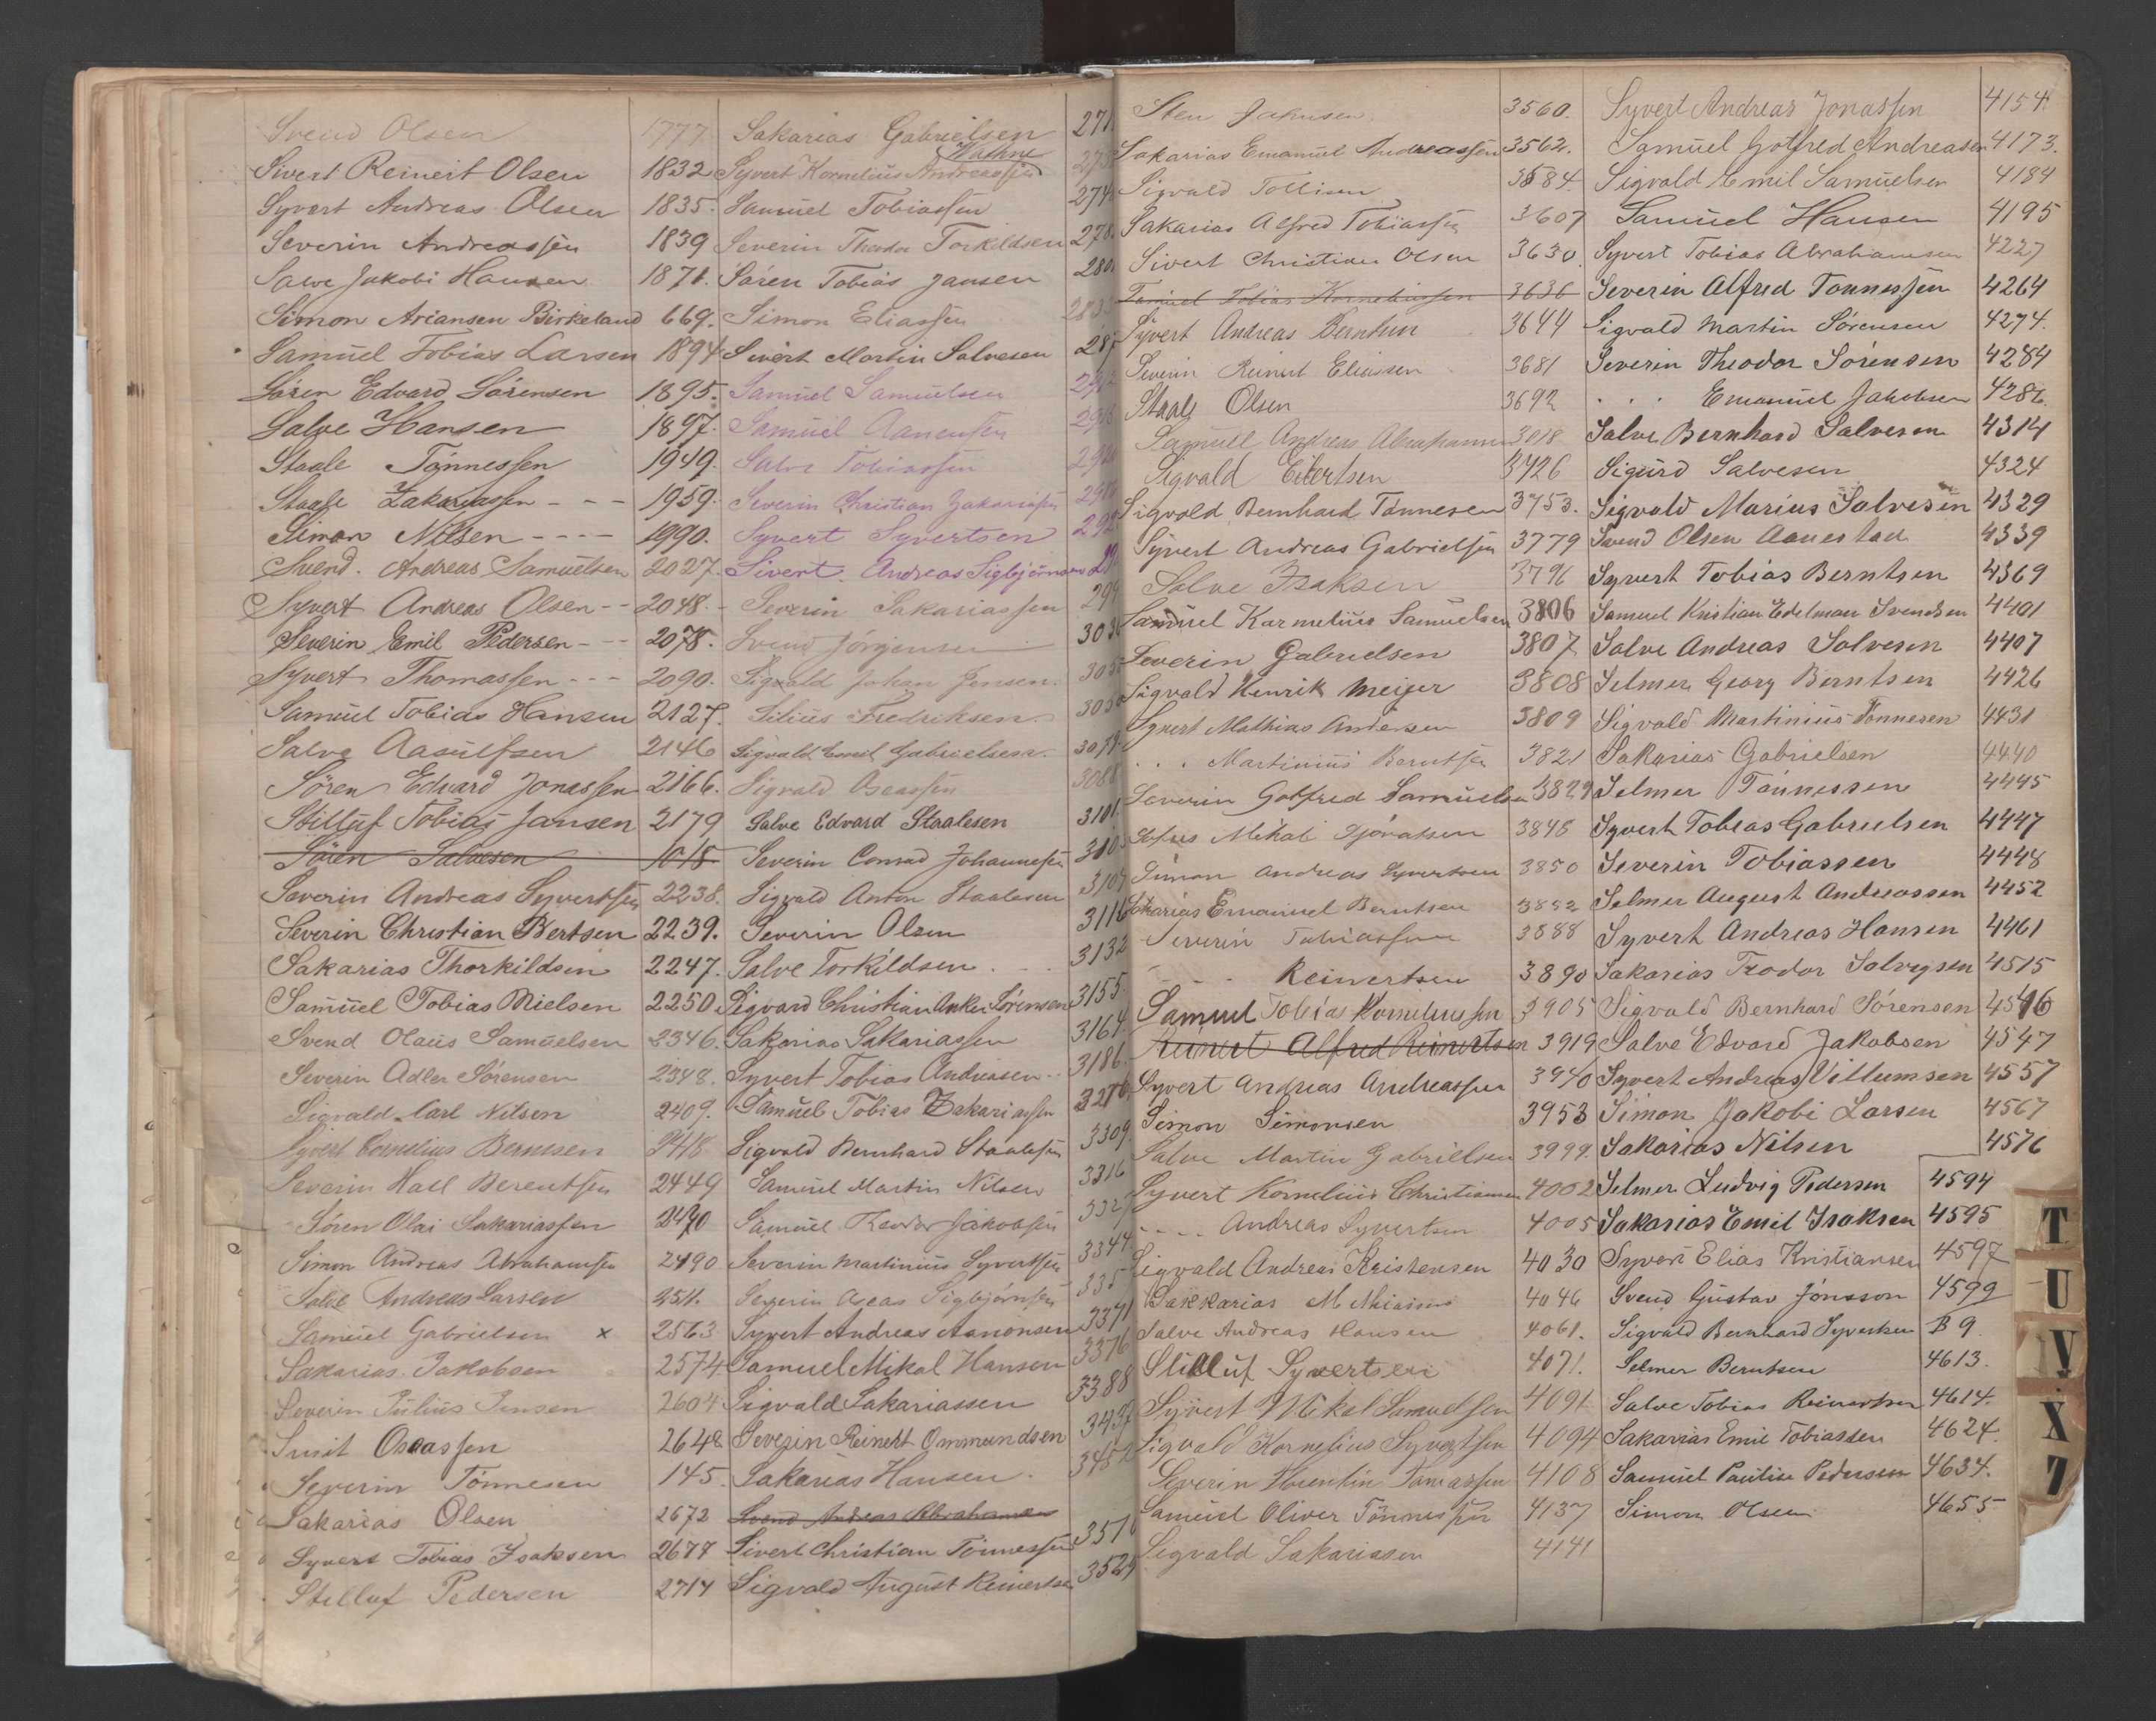 Svend Olsen 1777
Sivert Reinert Olsen 1832
Syvert Andreas Olsen 1835.
Severin Andreassen 1839
Salve Jakobi Hansen 1871.
Simon Ariansen Birkeland 669.
Samuel Tobias Larsen 1894
Sören Edvard Sörensen 1895.
Salve Hansen 1897.
Staale Tönnessen 1949.
Staale Zakariassen - - - 1959.
Simon Nilsen - - - - 1990.
Svend. Andreas Samuelsen 2027.
Syvert Andreas Olsen - - 2048. -
Severin Emil Pedersen - - 2078.
Syvert Thomassen - - - 2090.
Samuel Tobias Hansen 2127.
Salve Aasulfsen 2146
Sören Edvard Jonassen 2166.
Stilluf Tobias Jansen 2179
Sören Salvesen 1018
Severin Andreas Syvertsen 2238.
Severin Christian Bertsen 2239.
Sakarias Thorkildsen 2247.
Samuel Tobias Nielsen 2250
Svend Olaus Samuelsen 2346.
Severin Adler Sörensen 2348.
Sigvald Carl Nilsen 2409.
Syvert Cornelius Berntsen 2418.
Severin Hall Berentsen 2449
Sören Olai Sakariassen 2470
Simon Andreas Abrahamsen 2490
Salve Andreas Larsen 2511.
Samuel Gabrielsen x 2563
Sakarias Jakobsen 2574.
Severin Julius Jensen 2604
Smit Oseassen 2648
Severin Tönnesen 145.
Sakarias Olsen 2672
Syvert Tobias Isaksen 2677
Stilluf Pedersen 2714
Sakarias Gabrielsen 271
Syvert Kornelius Andreassen
Samuel Tobiassen 274
Severin Theodor Torkildsen 278.
Sören Tobias Jansen 280
Simon Eliassen 283
Sivert Martin Salvesen 287
Samuel Samuelsen
Samuel Aanensen
Salve Tobiassen
Severin Christian Zakariassen
Syvert Syvertsen
Sivert. Andreas Sigbjörnsen
Severin Sakariassen 299
Svend Jörgensen 303
Sigvald Johan Jensen. 305
Silius Fredriksen
Sigvald Emil Gabrielsen. 307
Sigvald Oseassen 3088
Salve Edvard Staalesen 3101.
Severin Conrad Johannessen 310
Sigvald Anton Staalesen 3107
Severin Olsen 3116
Salve Torkildsen . . . 3132
Sigvard Christian Anker Sörensen 3155.
Sakarias Sakariassen 3164.
Syvert Tobias Andreasen .. 3186
Samuel Tobias Zakariassen 3276
Sigvald Bernhard Staalesen 3309.
Samuel Martin Nilsen 3316
Samuel Theodor Jakobsen 332
Severin Martinius Syvertsen 3344.
Severin Oseas Sigbjörnsen 335
Syvert Andreas Aanonsen 3371
Samuel Mikal Hansen 3376
Sigvald Sakariassen 3388
Severin Reinert Ommundsen 3437
Sakarias Hansen. 345
Svend Andreas Abrahamsen
Sivert Christian Tönnessen 351
Sigvald August Reinertsen 352
Sten Jakobsen. 3560.
Sakarias Emanuel Andreassen 3562.
Sigvald Tollisen 3584.
Sakarias Alfred Tobiassen 3607
Sivert Christian Olsen 3630.
Samuel Tobias Korneliussen 3636
Syvert Andreas Berntsen 3644
Severin Reinert Eliassen 3681
Staale Olsen 3692
Samuel Andreas Abrahamsen 3018
Sigvald Eilertsen 3726
Sigvald Bernhard Tönnesen 3753.
Syvert Andreas Gabrielsen 3779
Salve Isaksen 3796
Samuel Karnelius Samuelsen 3806
Severin Gabrielsen 3807
Sigvald Henrik Meijer 3808
Syvert Mathias Andersen 3809
. . . Martinius Berntsen 3821
Severin Gotfred Samuelsen 3829
Mikal 3848
Simon Andreas Syvertsen 3850
Sakarias Emanuel Berntsen 3882
Severin Tobiassen 3888
- - - Reinertsen 3890
Samuel Tobias Korneliussen 3905
Reinert Alfred Reinertsen 3919
Syvert Andreas Andreassen 3940
Simon Simonsen 3953
Salve Martin Gabrielsen 3999.
Syvert Kornelius Christiansen 4002
- - - Andreas Syvertsen 4005
Sigvald Andreas Kristensen 4030
Sakkarias M Mathiassen 4046
Salve Andreas Hansen 4061.
Stilluf Syvertsen 4071.
Syvert Mikal Samuelsen 4091
Sigvald Kornelius Syvertsen 4094
Severin 4108
Samuel Oliver Tönnessen 4137
Sigvald Sakariassen 4141
Syvert Andreas Jonassen 4154.
Samuel Gotfred Andreasen 4173.
Sigvald Emil Samuelsen 4184
Samuel Hansen 4195
Syvert Tobias Abrahamsen 4227
Severin Alfred Tonnessen 4264
Sigvald Martin Sörensen 4274.
Severin Theodor Sörensen 4284
. . . Emanuel Jakobsen 4286.
Salve Bernhard Salvesen 4314
Sigurd Salvesen 4324
Sigvald Marius Salvesen 4329
Svend Olsen Aanestad 4339
Syvert Tobias Berntsen 4369
Samuel Kristian Edelman Svendsen 4401
Salve Andreas Salvesen 4407
Selmer Georg Berntsen 4426
Sigvald Martinius Tönnesen 4431
Sakarias Gabrielsen 4440
Selmer Tönnessen 4445
Syvert Tobias Gabrielsen 4447
Severin Tobiassen 4448
Selmer August Andreassen 4452
Syvert Andreas Hansen 4461
Sakarias Teodor Solvgsen 4515
Sigvald Bernhard Sörensen 4516
Salve Edvard Jakobsen 4547
Syvert Andreas Villumsen 4557
Simon Jakobi Larsen 4567
Sakarias Nilsen 4576
Selmer Ludvig Pedersen 4594
Sakarias Emil Isaksen 4595
Syvert Elias Kristiansen 4597
Svend Gustav Jönsson 4599
Sigvald Bernhard Syvertsen B 9
Selmer Berntsen 4613.
Salve Tobias Reinertsen 4614.
Sakarias Emil Tobiassen 4624.
Samuel Paulin Pedersen 4634.
Simon Olsen 4655
T
U
V
X
Z